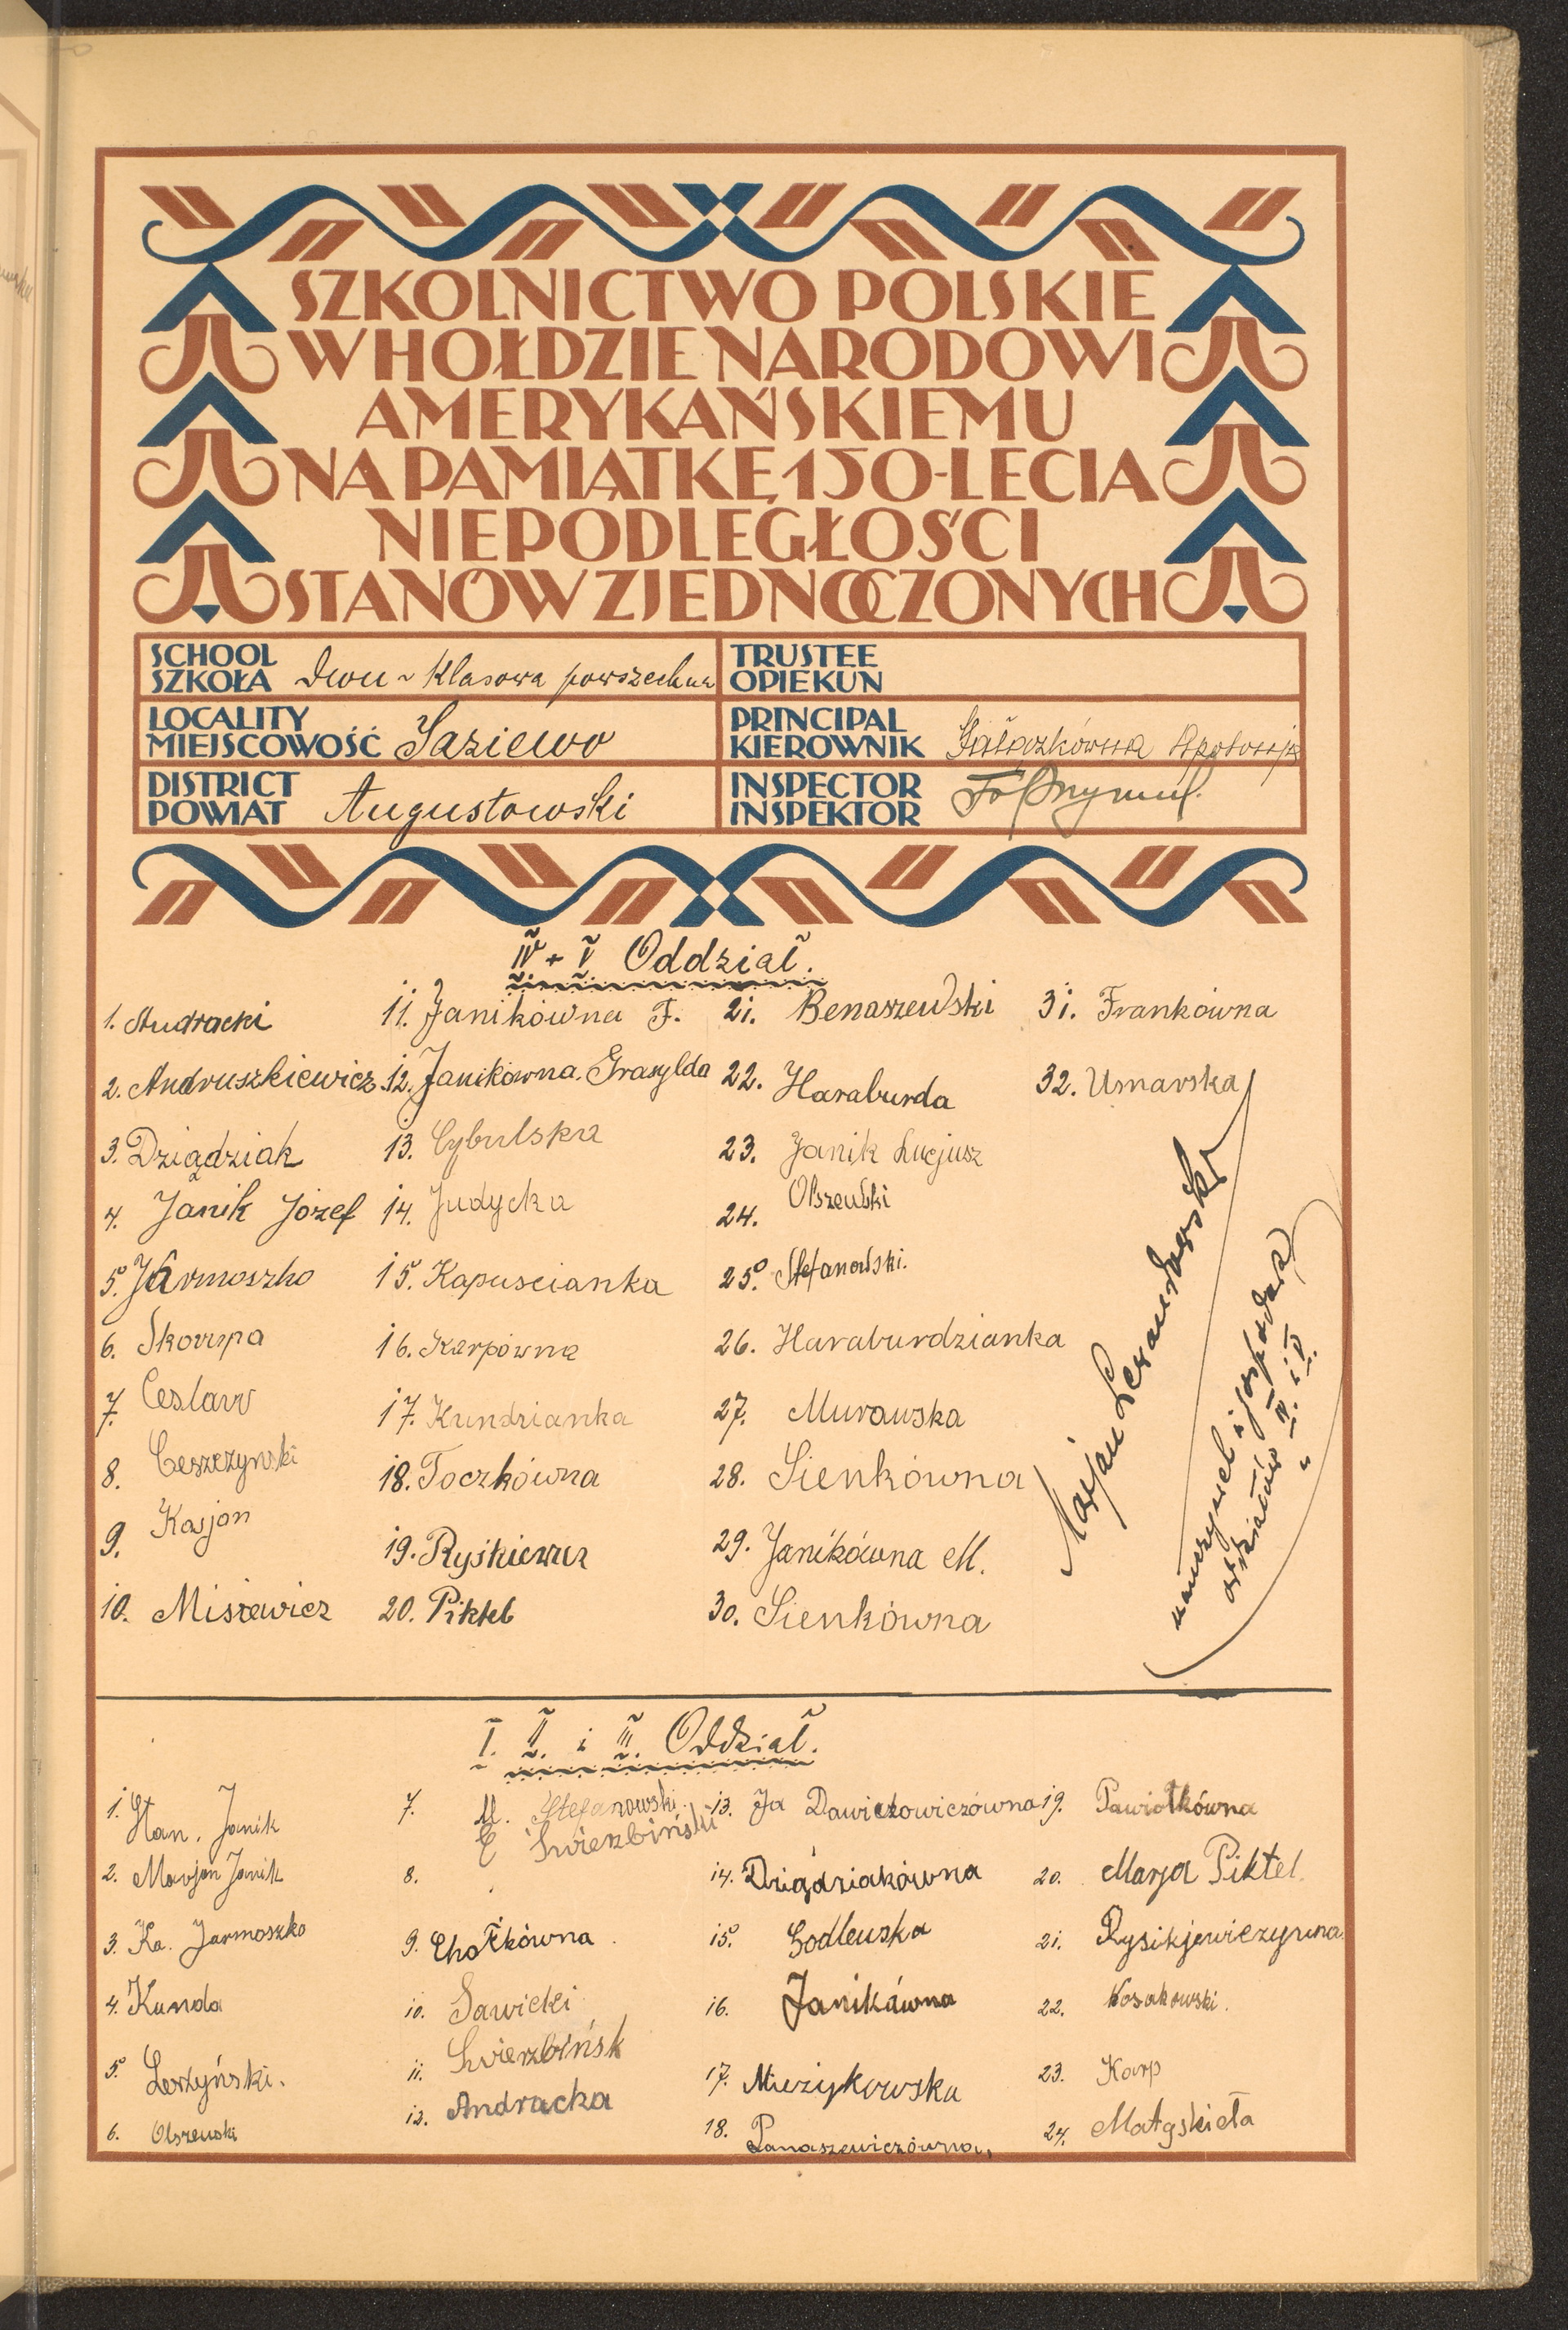 SZKOLNICTWO POLSKIE
W HOŁDZIE NARODOWI
AMERYKAŃSKIEMU
NA PAMIĄTKĘ 150-LECIA
NIEPODLEGŁOŚCI
STANÓW ZJEDNOCZONYCH
SCHOOL
SZKOŁA Dwu-klasowa powszechna
TRUSTEE
OPIEKUN
LOCALITY
MIEJSCOWOŚĆ Jaziewo
PRINCIPAL
KIEROWNIK Gałązkówna Apolonja
DISTRICT
POWIAT Augustowski
INSPECTOR
INSPEKTOR
IV + V Oddział.
1. Andracki
2. Andruszkiewicz
3. Dziądziak
4. Janik Józef
5. Jarmoszko
6. Skorupa
7. Ceslaw
8. Ceszczynski
9. Kasjan
10. Misiewicz
11. Janikówna F.
12. Janikówna Grasylda
13. Cybulska
14. Judycka
15. Kapuscianka
16. Karpówna
17. Kundzianka
18. Toczkówna
19. Ryśkiewicz
20. Piktel
21. Benaszewski
22. Haraburda
23. Janik Lucjusz
24. Olszewski
25. Stefanowski.
26. Haraburdzianka
27. Murawska
28. Sienkówna
29. Janikówna M.
30. Sienkówna
31. Frankówna
32. Usnarska
Marjan Lewandowski
nauczyciel i gospodarz
oddziałów IV i V.
I. II. i III. Oddział.
1. Stan. Janik
2. Marjan Janik
3. Ka. Jarmoszko
4. Kunda
5. Leszyński.
6. Olszewski
7. M. Stefanowski.
8. C Świerzbiński
9. Chotkówna
10. Sawicki
11. Świerzbińsk
12. Andracka
13. Ja Dawidowiczówna
14. Dziądziakówna
15. Godlewska
16. Janikówna
17. Mieżykowska
18. Panaszewiczówna,
19. Pawiotkówna
20. Marja Piktel.
21. Rysikjewiczyuwna
22. Kosakowski.
23. Karp
24. Matyskieła